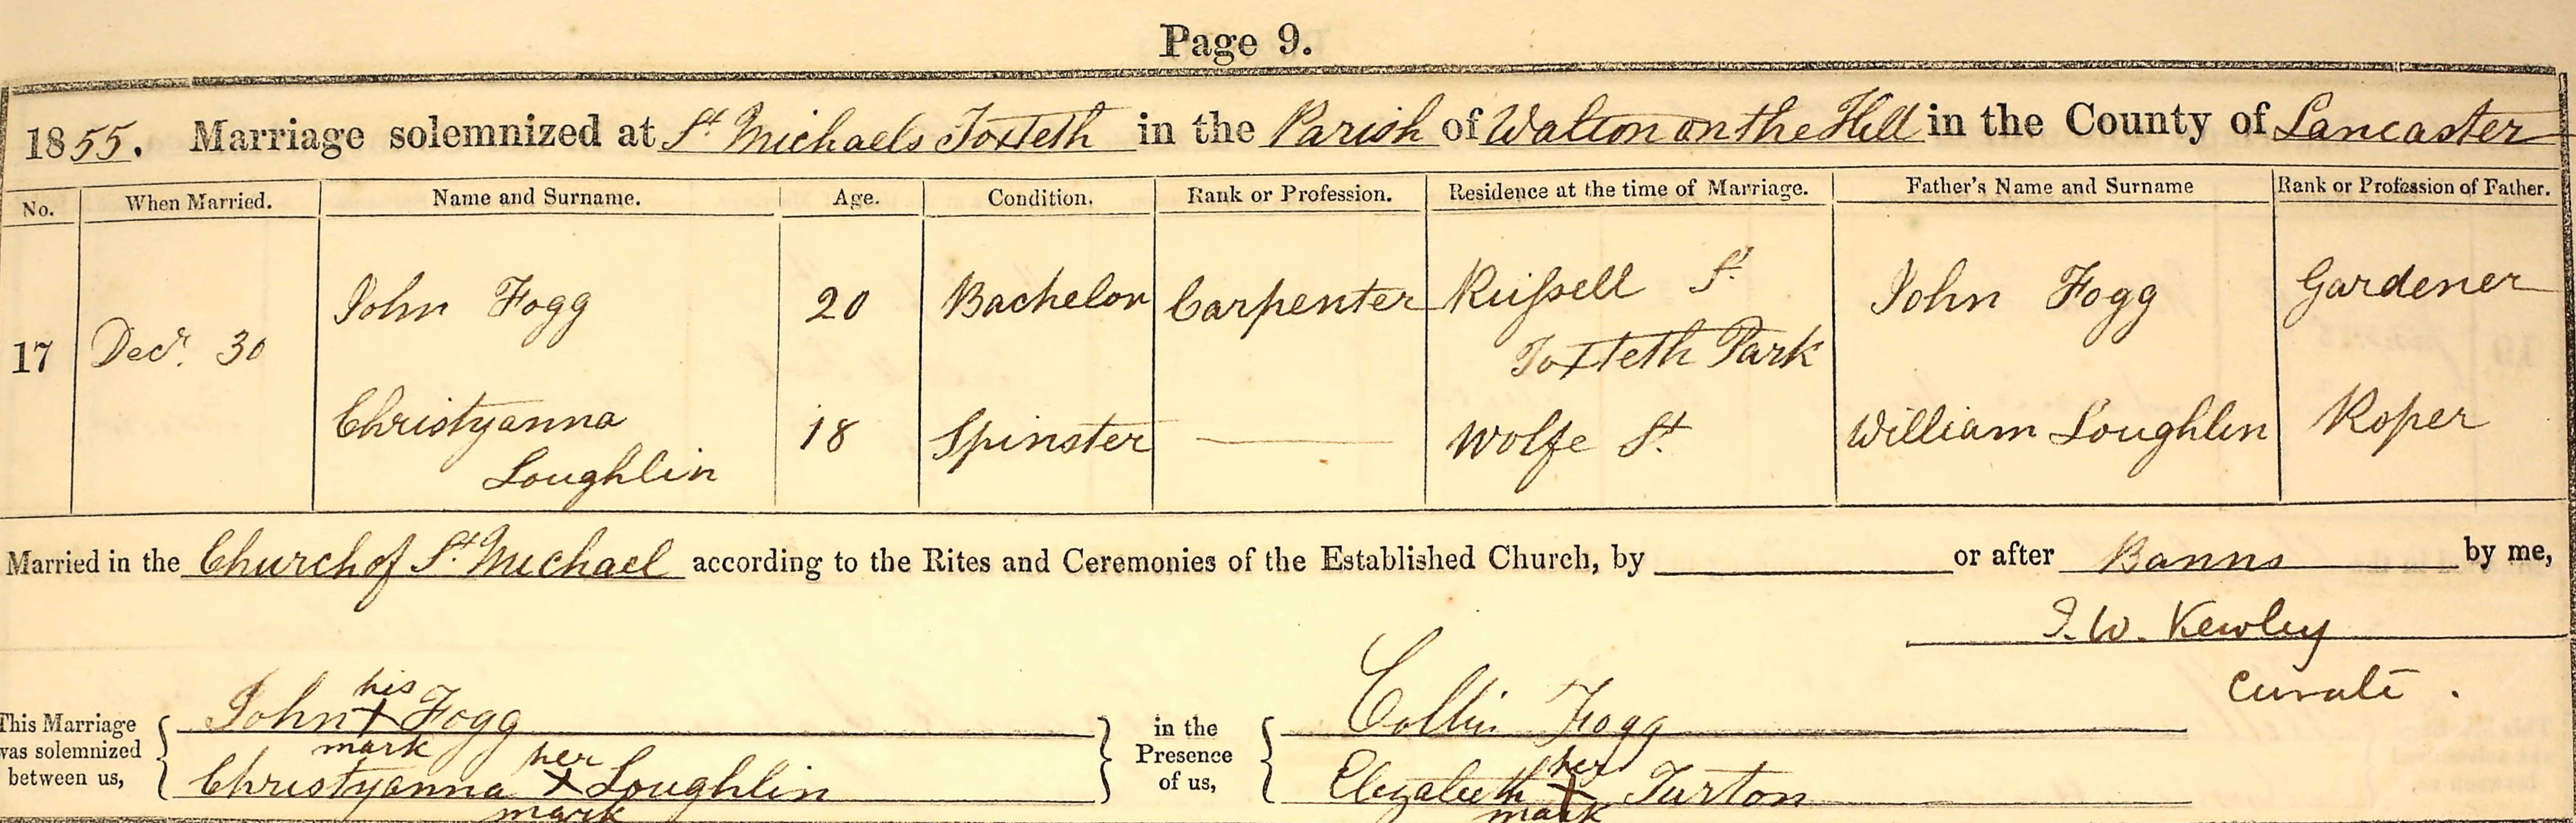 Page 9.
1855. Marriage solemnized at St Michaels Toxteth in the Parish of Walton on the Hill in the County of Lancaster
No. When Married. Name and Surname. Age. Condition. Rank or Profession. Residence at the time of Marriage. Father's Name and Surname Rank or Profession of Father.
17 Decr. 30 John Fogg 20 Bachelor Carpenter Russell St John Fogg Gardener
Toxteth Park
Christyanna 18 Spinster — Wolfe St. William Loughlin Roper
Loughlin
Married in the Church of St. Michael according to the Rites and Ceremonies of the Established Church, by or after Banns by me,
J. W. Kewley
Curate.
This Marriage was solemnized between us,
his
John X Fogg
mark
her
Christyanna X Loughlin
mark
in the Presence of us,
Collin Fogg
her
Elizabeth X Turton
mark